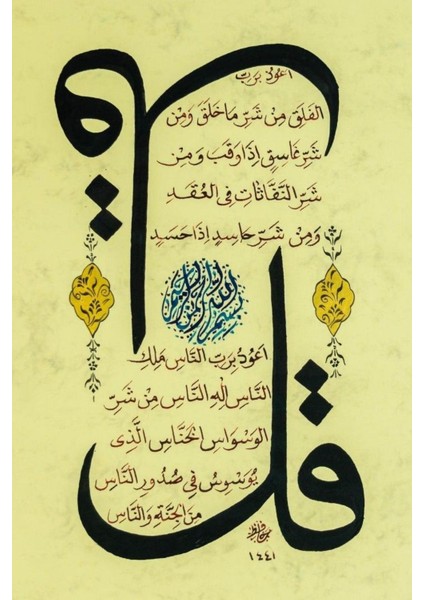 قل
اعوذ برب
الفلق مِن شرِّ مَا خلقَ وَمِن
شرِّ غَاسِقٍ اِذَا وَقَبَ وَمِن
شرِّ النَّفَّاثَاتِ فِي العُقَدِ
وَمِن شَرِّ حَاسِدٍ اِذَا حَسَدَ
بسم الله الرحمن الرحيم
قل
اعوذ بربِّ النَّاسِ مَلِكِ
النَّاسِ اِلهِ النَّاسِ مِن شَرِّ
الوَسوَاسِ الخَنَّاسِ الَّذِي
يُوَسوِسُ فِي صُدُورِ النَّاسِ
مِنَ الجِنَّةِ وَالنَّاسِ
١٤٤١